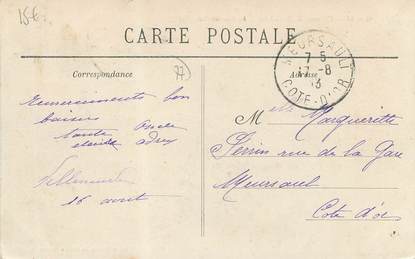 15€
CARTE POSTALE
Correspondance
Adresse
MEURSAULT
7 5
17 -8
13
COTE-D'OR
remerciements bon
baisers
tante Oncle
16 août
Mlle Margueritte
Perrin rue de la Gare
Meursault
Cote d'or